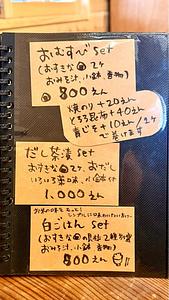 おむすび set
(おすきな 2ヶ
おみそ汁、小鉢 香物)
800えん
焼のり +20えん
とろろ昆布 +40えん
青じそ +10えん / 1ヶ
で巻けます
だし茶漬 set
おすきな 2ヶ、おだし
いろいろ薬味、小鉢付
1,000えん
白ごはん set
(おすきな の具材 2種別盛
おみそ汁、小鉢 香物)
800えん